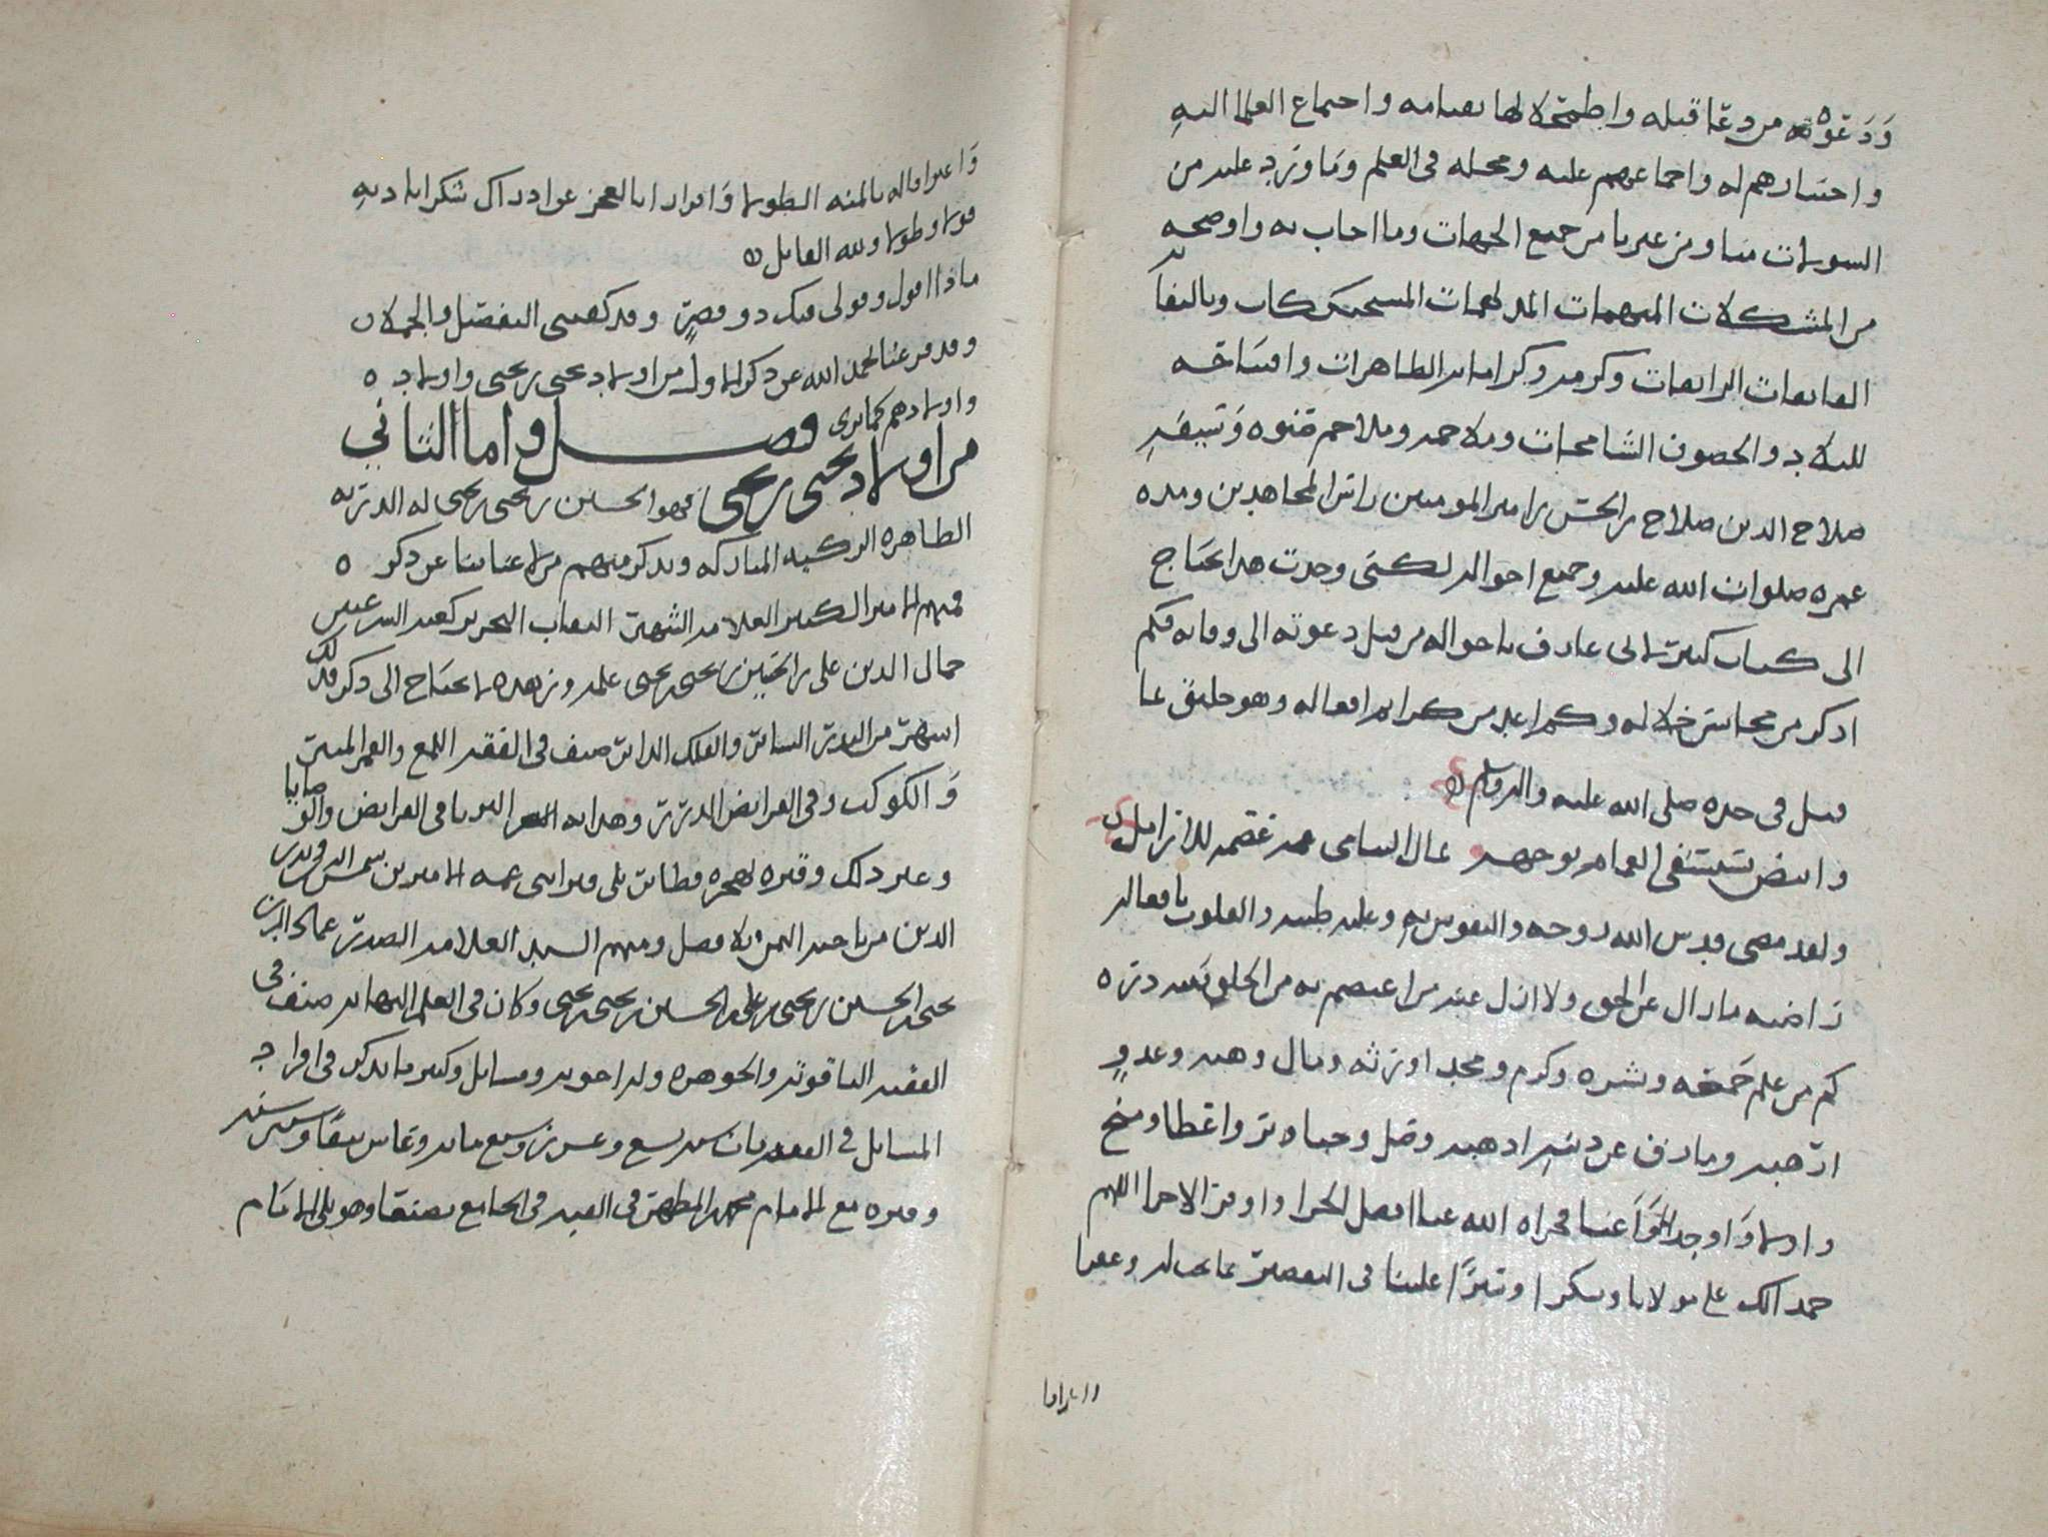 ودعوته من دعا قبله واطمحلالها بقيامه واجتماع العلما اليه
واختيارهم له واجماعهم عليه ومحله في العلم وما ورد عليه من
السولات منا ومن غيرنا من جميع الجهات وما اجاب به واوضحه
من المشكلات المبهمات المدلهمات
الرايعات وكرمه وكراماته الطاهرات وافتتاحه
للبلاد والحصون الشامخات وملاحمه وملاحم صنوه وسيفه
صلاح الدين صلاح بن الحسن بن امير المومنين راس المجاهدين ومده
عمره صلوات الله عليه وجميع احواله لكني وجدت هذا يحتاج
الى كتاب كبير الى عارف باحواله من قبل دعوته الى وفاته فكم
اذكر من محاسن خلاله وكم اعد من كرايم افعاله وهو حقيق بما
قيل في جده صلى الله عليه واله وسلم
وابيض يستسقى الغمام بوجهه ثمال اليتامى عصمة للارامل
ولقد مضى قدس الله روحه والنفوس به وعليه طيبه والقلوب بافعاله
راضيه ما زال عن الحق ولا ازل عنه من اعتصم به من الخلق لله دره
كم من علم جمعه ونشره وكرم ومجد اورثه ومال وهبه وعدو
ارهبه وما زف عن دينه اذهبه وفضل وحباه بر واعطا ومنح
فجزاه الله عنا افضل الجزا واوفر الاجزا اللهم
حمدا لك على مولانا وشكرا وسترا علينا في التقصير عما يجب له وغفرا
واعترافا
واعترافا له بالمنه الطولا واقرارا بالعجز عن ادراك شكر اياديه
قولا وطولا ولله القايل
ماذا اقول وقولي فيك ذو قصر وقد كفيتني التفصيل والجملا
وقد فرغنا بحمد الله عن ذكر الاول من اولاد يحيى بن يحيى واولاده
واولادهم كما ترى فصل واما الثاني
من اولاد يحيى بن يحيى فهو الحسين بن يحيى بن يحيى له الذريه
الطاهره الزكيه المباركه ونذكر منهم من لا غنا بنا عن ذكره
فمنهم الامير الكبير العلامه الشهير النقاب النحرير كعبه المسترعيين
جمال الدين علي بن الحسين بن يحيى بن يحيى علمه وزهده لا يحتاج الى ذكر فذلك
اشهر من البدر الساير والفلك الداير صنف في الفقه اللمع والقمر المنير
والكوكب وفي الفرايض الدرر وهدايه البرايا في الفرايض والوصايا
وغير ذلك وقبره بهجره قطابر يلي قبر ابني عمه الاميرين شمس الدين وبدر
الدين من ناحيه اليمن بلا فصل ومنهم السيد العلامه الصدر عماد الدين
يحيى بن الحسين بن يحيى بن علي بن الحسين بن يحيى بن يحيى وكان في العلم النهايه صنف في
الفقه الياقوته والجوهره وله اجوبه ومسايل وكثير ما يذكر في افراد
المسايل في الفقه مات سنه تسع وعشرين وسبع مايه وعاش نيفا وستين سنه
وقبره مع الامام محمد بن المطهر في القبه في الجامع بصنعا وهو يلي الامام